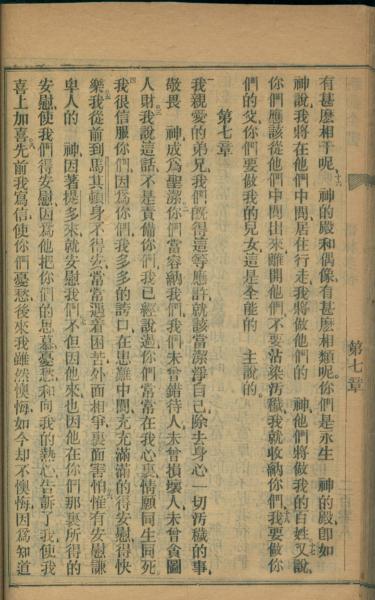 有甚麽相干呢、十六神的殿和偶像有甚麽相類呢、你們是永生　神的殿卽如
神說、我將在他們中間居住行走、我將做他們的　神、他們將做我的百姓、十七又說、
你們應該從他們中間出來、離開他們、不要沾染汚穢、我就收納你們、十八我要做你
們的父、你們要做我的兒女、這是全能的　主說的、
第七章
一我親愛的弟兄、我們旣得這等應許、就該當潔淨自己、除去身心一切汚穢的事、
敬畏　神、成爲聖潔、二你們當容納我們、我們未曾錯待人、未曾損壞人、未曾貪圖
人財、三我說這話、不是責備你們、我已經說過、你們常常在我心裏、情願同生同死、
四我很信服你們、因爲你們我多多的誇口、在患難中間、充充滿滿的得安慰得快
樂、五我從前到馬其頓、身不得安、常常遇着困苦、外面相爭、裏面害怕、六惟有安慰謙
卑人的　神、因著提多來就安慰我們、七不但因他來、也因他在你們那裏所得的
安慰、使我們得安慰、因爲他把你們的思慕憂愁、和向我的熱心告訴了我、使我
喜上加喜、八先前我寫信、使你們憂愁、後來我雖然懊悔、如今却不懊悔、因爲知道
第七章